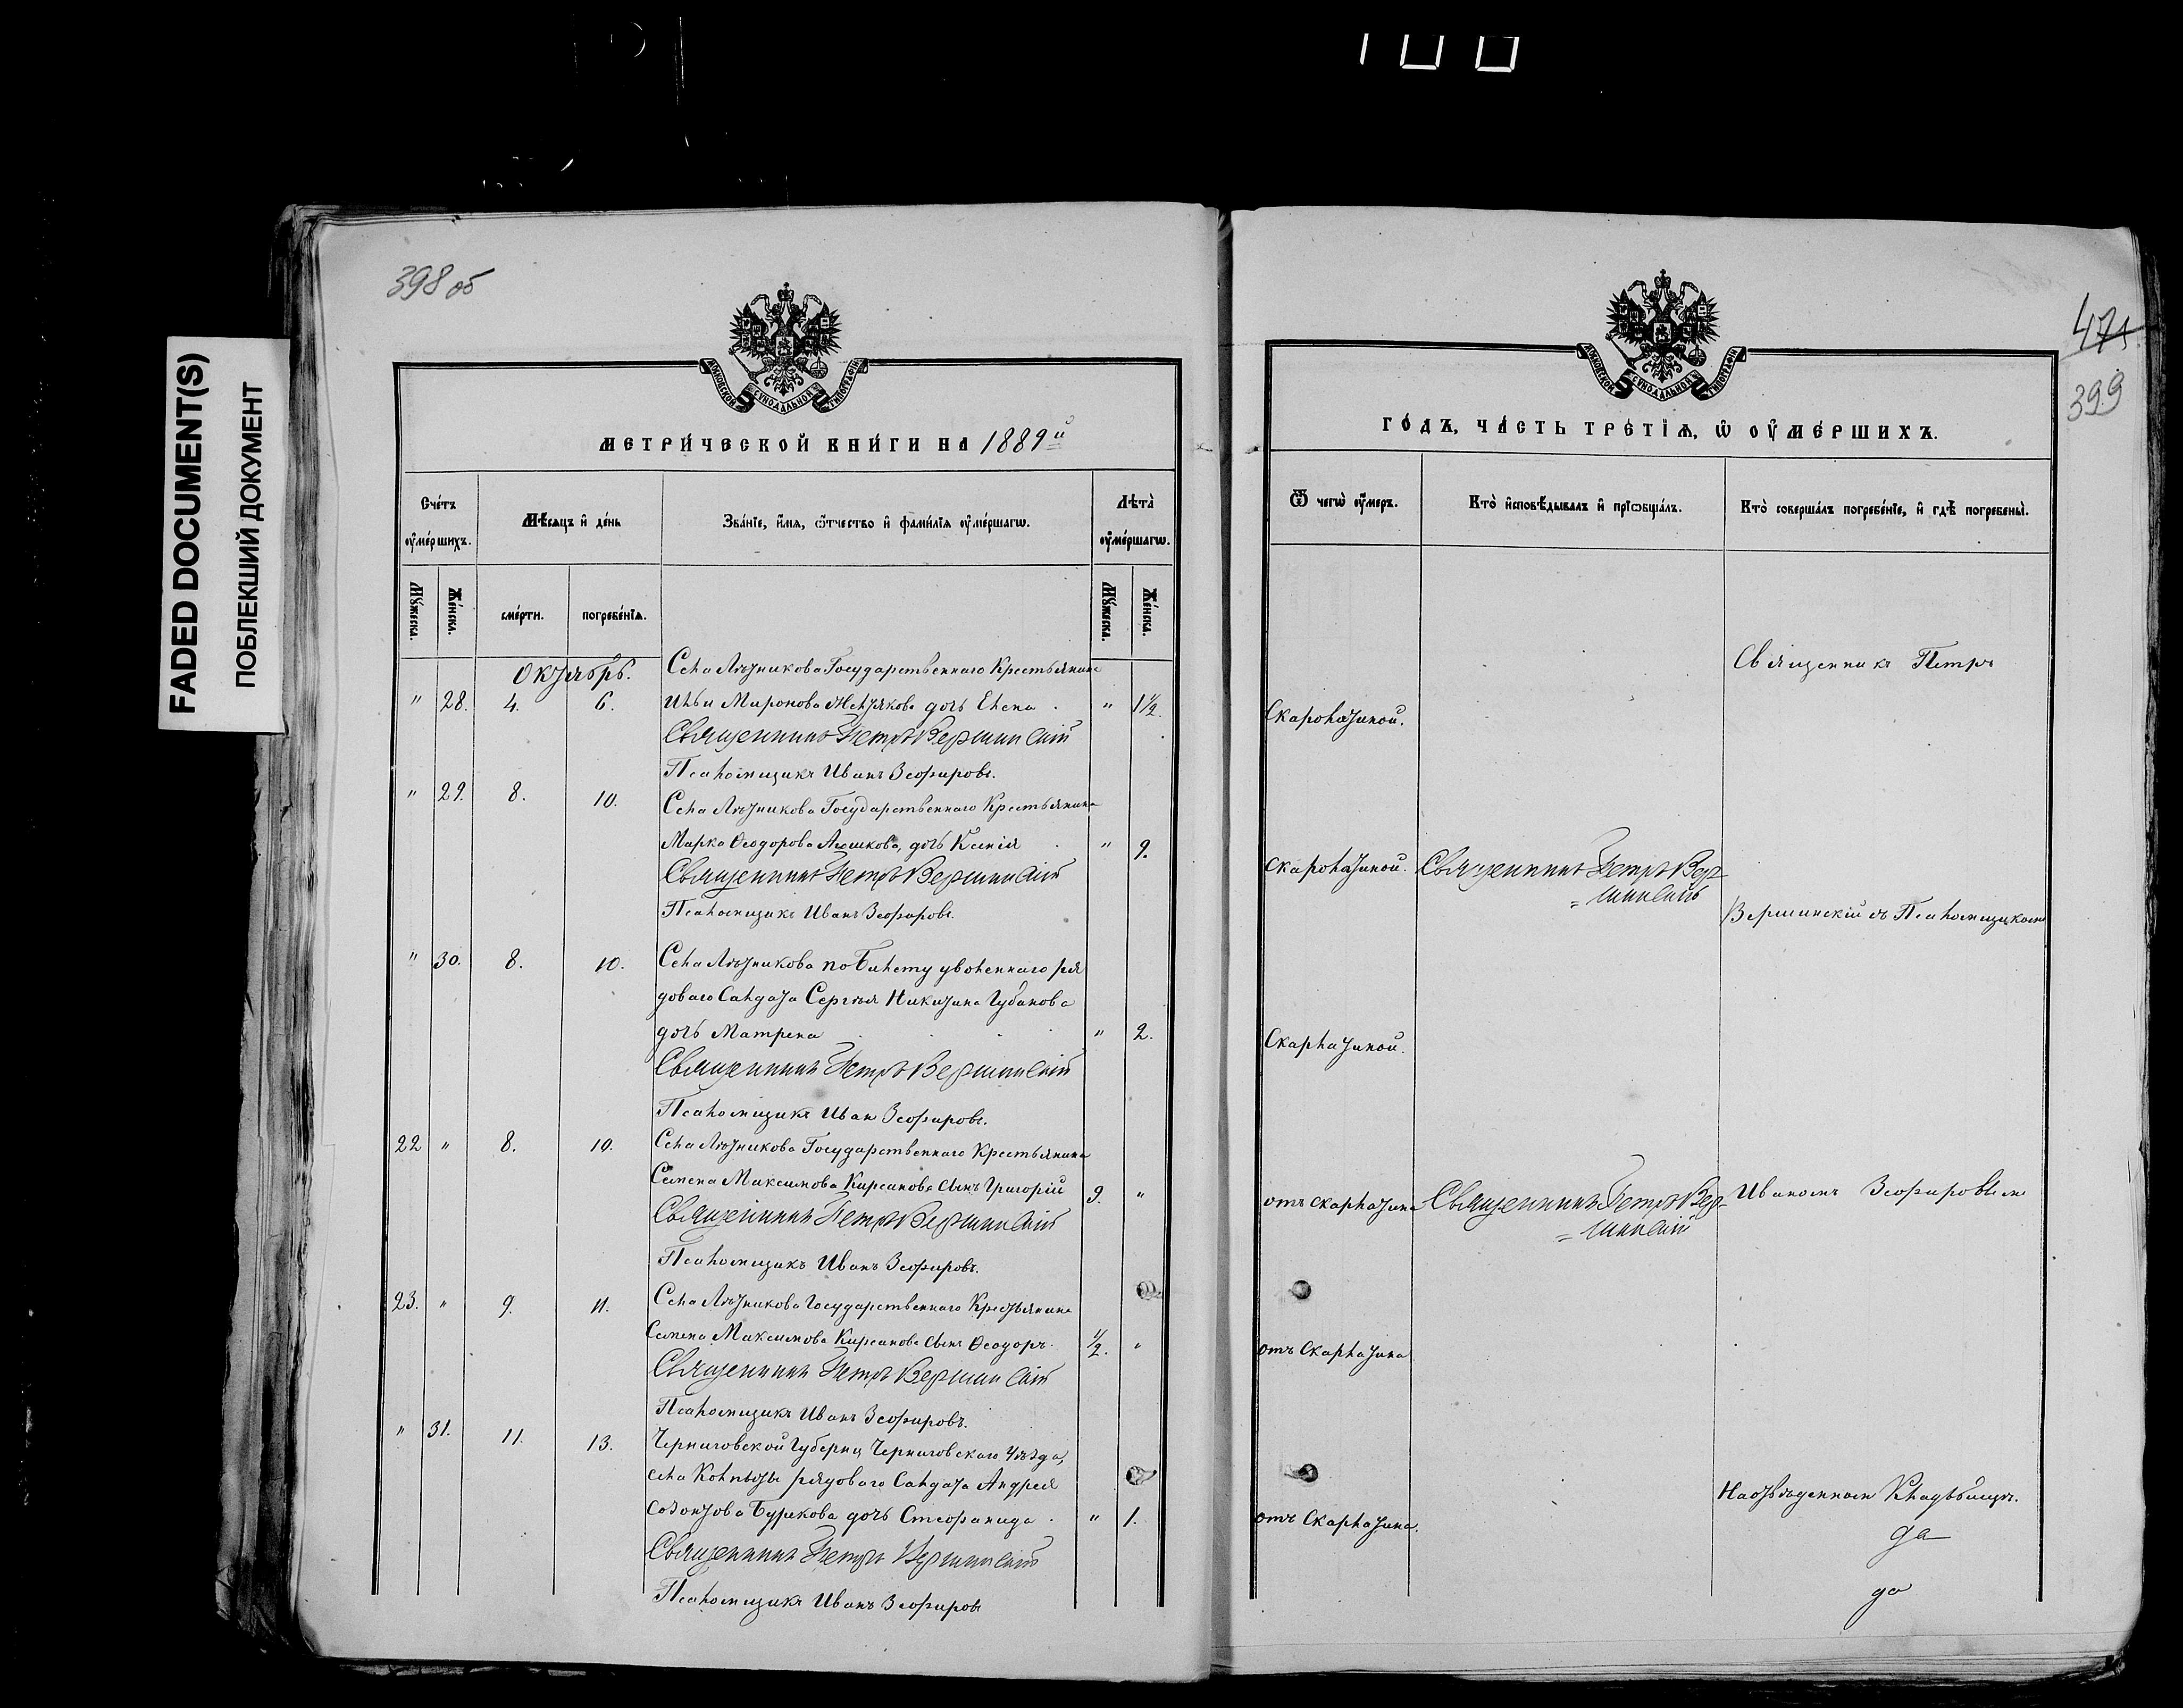 100
FADED DOCUMENT(S)
ПОБЛЕКШИЙ ДОКУМЕНТ
398 об
МОСКОВСКОЙ СУНОДАЛЬНОЙ ТИПОГРАФІИ
МЕТРИ́ЧЕСКОЙ КНИ́ГИ НА 1889й
Сче́тъ ᲂу҆ме́ршихъ.
Мѣ́сяцъ и҆ де́нь
Зва́нїе, и҆́мя, ѻ҆́тчество и҆ фами́лїя ᲂу҆ме́ршагѡ.
Лѣта̀ ᲂу҆ме́ршагѡ.
Мꙋ́жеска.
Же́нска.
сме́рти.
погребе́нїя.
Мꙋ́жеска.
Же́нска.
Октябрь.
Села Лѣтникова Государственнаго Крестьянина
" 28. 4. 6. Ильи Миронова Желтякова дочь Елена " 1½.
Священникъ Петръ Вершинскій
Псаломщикъ Иванъ Зефировъ.
" 29. 8. 10. Села Лѣтникова Государственнаго Крестьянина
Марка Ѳеодорова Алешкова, дочь Ксенія " 9.
Священникъ Петръ Вершинскій
Псаломщикъ Иванъ Зефировъ.
" 30. 8. 10. Села Лѣтникова по билету уволеннаго ря
доваго Салдата Сергѣя Никитина Губанова
дочь Матрена " 2.
Священникъ Петръ Вершинскій
Псаломщикъ Иван Зефировъ.
22 " 8. 10. Села Лѣтникова Государственнаго Крестьянина
Семена Максимова Кирсанова сынъ Григорій 9. "
Священникъ Петръ Вершинскій
Псаломщикъ Иванъ Зефировъ.
23. " 9. 11. Села Лѣтникова Государственнаго Крестьянина
Семена Максимова Кирсанова сынъ Ѳеодоръ. ½. "
Священникъ Петръ Вершинскій
Псаломщикъ Иванъ Зефировъ.
" 31. 11. 13. Черниговской Губерніи Черниговскаго Уѣзда,
села рядоваго Салдата Андрея
Созонтова Буркова дочь Стефанида " 1.
Священникъ Петръ Вершинскій
Псаломщикъ Иванъ Зефировъ
471
399
МОСКОВСКОЙ СУНОДАЛЬНОЙ ТИПОГРАФІИ
ГО́ДЪ, ЧА́СТЬ ТРЕ́ТІѦ, Ѽ ОУ҆МЕ́РШИХЪ.
Ѿ чегѡ̀ ᲂу҆́меръ.
Кто̀ и҆сповѣ́дывалъ и҆ прїѡбща́лъ.
Кто̀ соверша́лъ погребе́нїе, и҆ гдѣ̀ погребены̀.
Священникъ Петръ
Скарлатиной.
скарлатиной. Священникъ Петръ Вер
= шинскій
Вершинскій съ Псаломщикомъ
Скарлатиной.
отъ скарлатины Священникъ Петръ Вер-
= шинскій
Иваномъ Зефировымъ
отъ Скарлатина
На отведенномъ Кладбищѣ.
отъ Скарлатина.
да
да